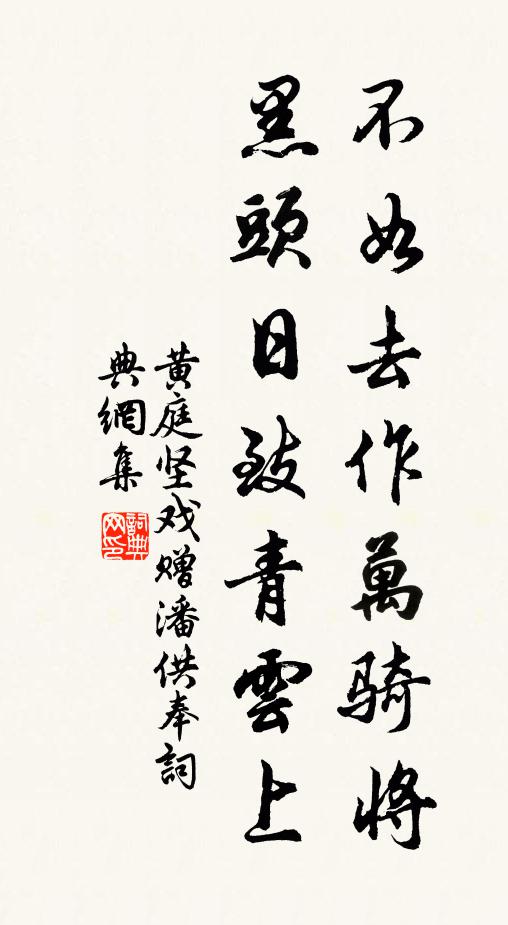 不如去作萬騎將
黑頭日致青雲上
黄庭坚戏赠潘供奉詞
典網集
詞典網印